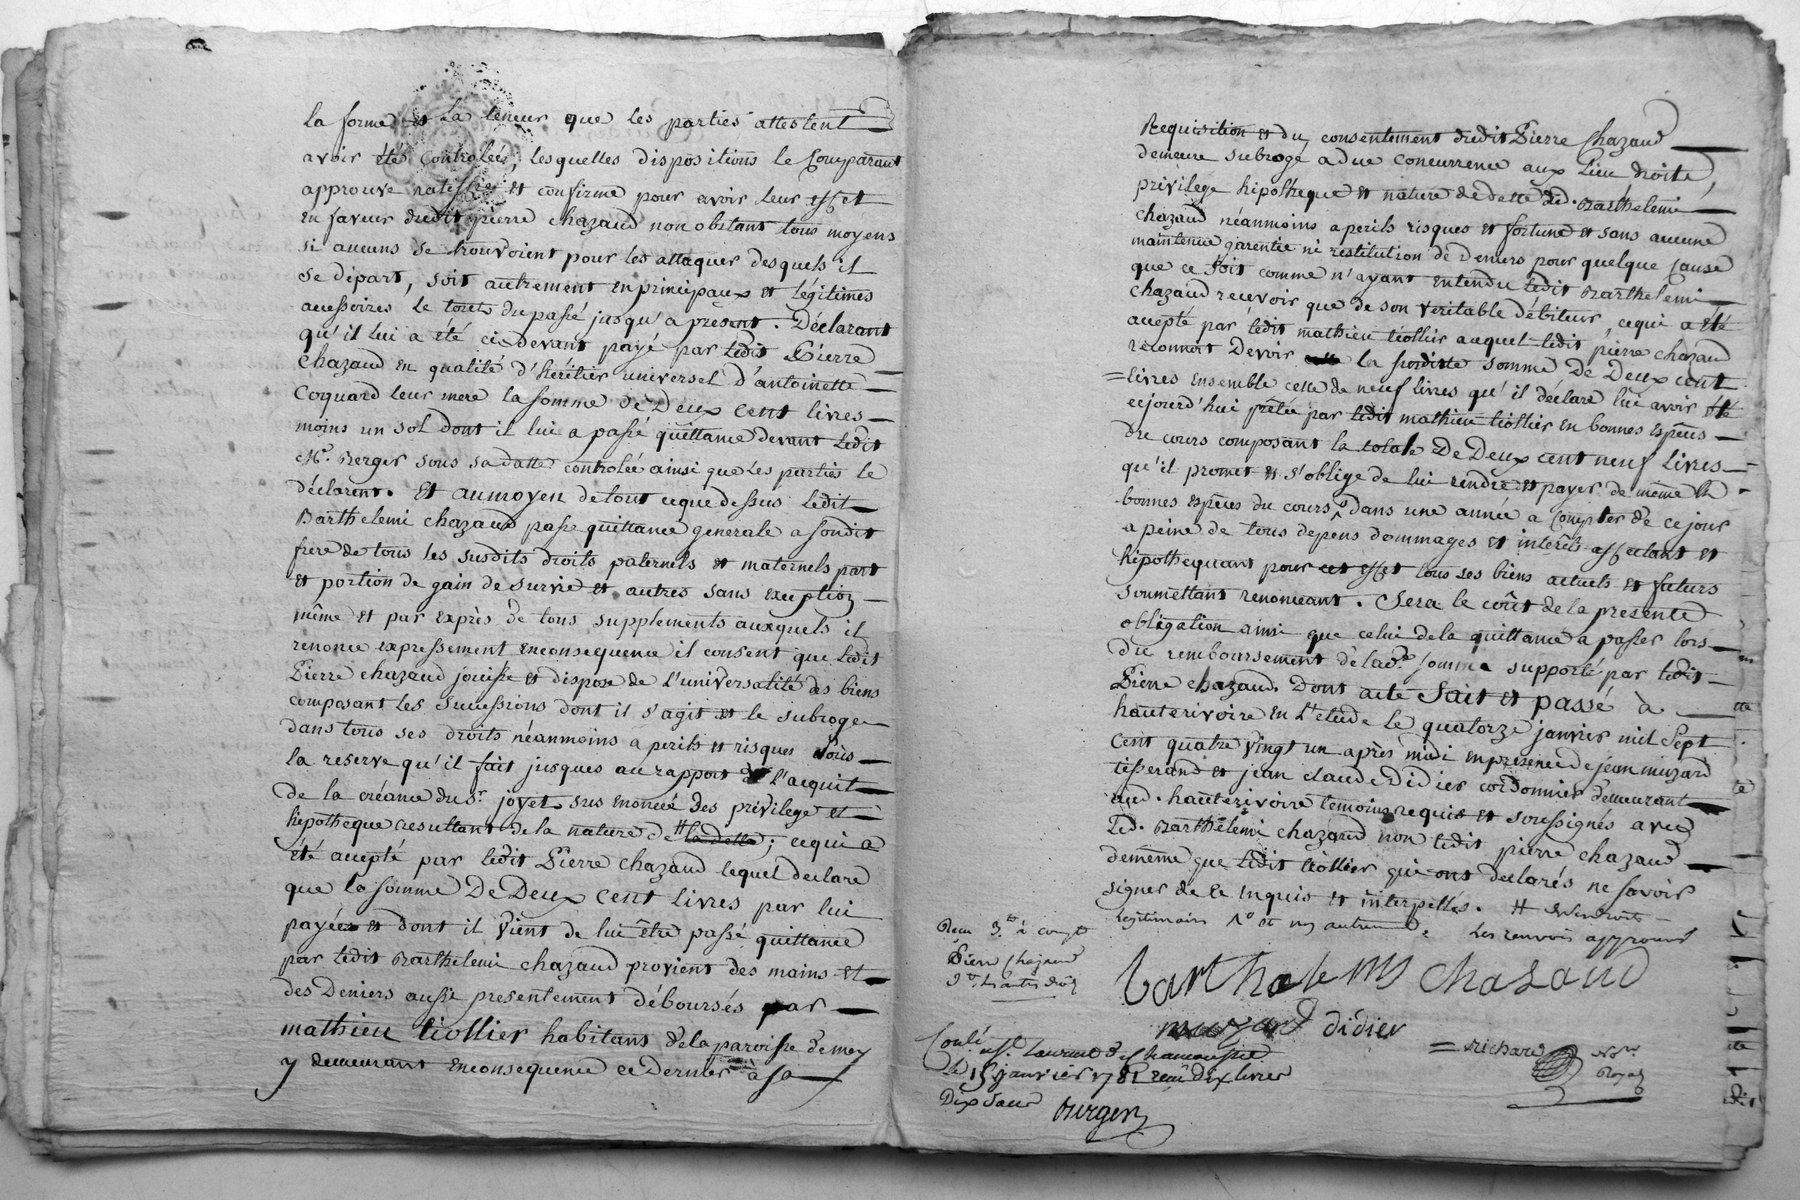 la forme et la teneur que les parties attestent
avoir été controlées, lesquelles dispositions le Comparant
approuve ratiffie et confirme pour avoir leur effet
en faveur dudit pierre chazaud non obstant tous moyens
si aucuns se trouvoient pour les attaquer desquels il
se départ, soit autrement en principaux et légitimes
accessoires le tout du passé jusqu'a présent. Déclarant
qu'il lui a été ci devant payé par ledit Pierre
Chazaud en qualité d'héritier universel d'antoinette
Coquard leur mere la somme de Deux cent livres
moins un sol dont il lui a passé quittance devant ledit
Me. Berger sous sa datte controlée ainsi que les parties le
déclarent. Et au moyen de tout ceque dessus ledit
Barthelemi chazaud passe quittance generale a sondit
frere de tous les susdits droits paternels et maternels part
et portion de gain de survie et autres sans exception
même et par exprès de tous supplements auxquels il
renonce expressement enconsequence il consent que ledit
Pierre chazaud jouisse et dispose de l'universalité des biens
composant les successions dont il s'agit et le subroge
dans tous ses droits néanmoins a perils et risques sous
la reserve qu'il fait jusques au rapport de l'acquit
de la créance du sr. joyet sus enoncée des privilege et
hipotheque resultant de la nature de # la dette; cequi a
été accepté par ledit Pierre chazaud lequel declare
que la somme De Deux cent livres par lui
payée et dont il vient de lui être passé quittance
par ledit Barthelemi chazaud provient des mains et
des Deniers aussi presentement déboursés par
mathieu tiollier habitans de la paroisse de mey
y demeurant enconsequence ce dernier à sa
Requisition et du consentement dudit Pierre Chazaud
demeure subrogé a due concurrence aux lieu droits,
privilége hipotheque et nature de dette dud. Barthelemi
chazaud néanmoins a perils risques et fortune et sans aucune
maintenue garentie ni restitution de Deniers pour quelque cause
que ce soit comme n'ayant entendu ledit Barthelemi
chazaud recevoir que de son veritable débiteur, cequi a été
accepté par ledit mathieu tiollier auquel ledit pierre chazaud
reconnoit Devoir la susdite somme De Deux cent
livres ensemble celle de neuf livres qu'il déclare lui avoir été
cejourd'hui prêtée par ledit mathieu tiollier en bonnes espèces
du cours composant la totale De Deux cent neuf livres
qu'il promet et s'oblige de lui rendre et payer de même en
bonnes espèces du cours dans une année a compter de ce jour
a peine de tous depens dommages et intérêts affectant et
hipothequant pour cet effet tous ses biens actuels et futurs
soumettant renonceant. Sera le coût de la presente
obligation ainsi que celui de la quittance a passer lors
du remboursement de lade. somme supporté par ledit
Pierre chazaud. Dont acte fait et passé à
hauterivoire en l'etude le quatorze janvier mil Sept
cent quatre vingt un après midi en presence de jean muzard
tisserand et jean claude Didier cordonnier demeurant
aud. hauterivoire temoins requis et soussignés avec
led. Barthelemi chazaud non ledit pierre chazaud
demême que ledit tiollier qui ont declarés ne savoir
signer de ce enquis et interpellés. #
les renvois approuvé
barthelemy chazaud
muzard didier
richard Nore. Royal
Recu 3.tt à compte
Pierre Chazaud
Conlé a St. Laurent de Chamousset
le 15 janvier 1781 reçu dix livres
Dix sous
Burger